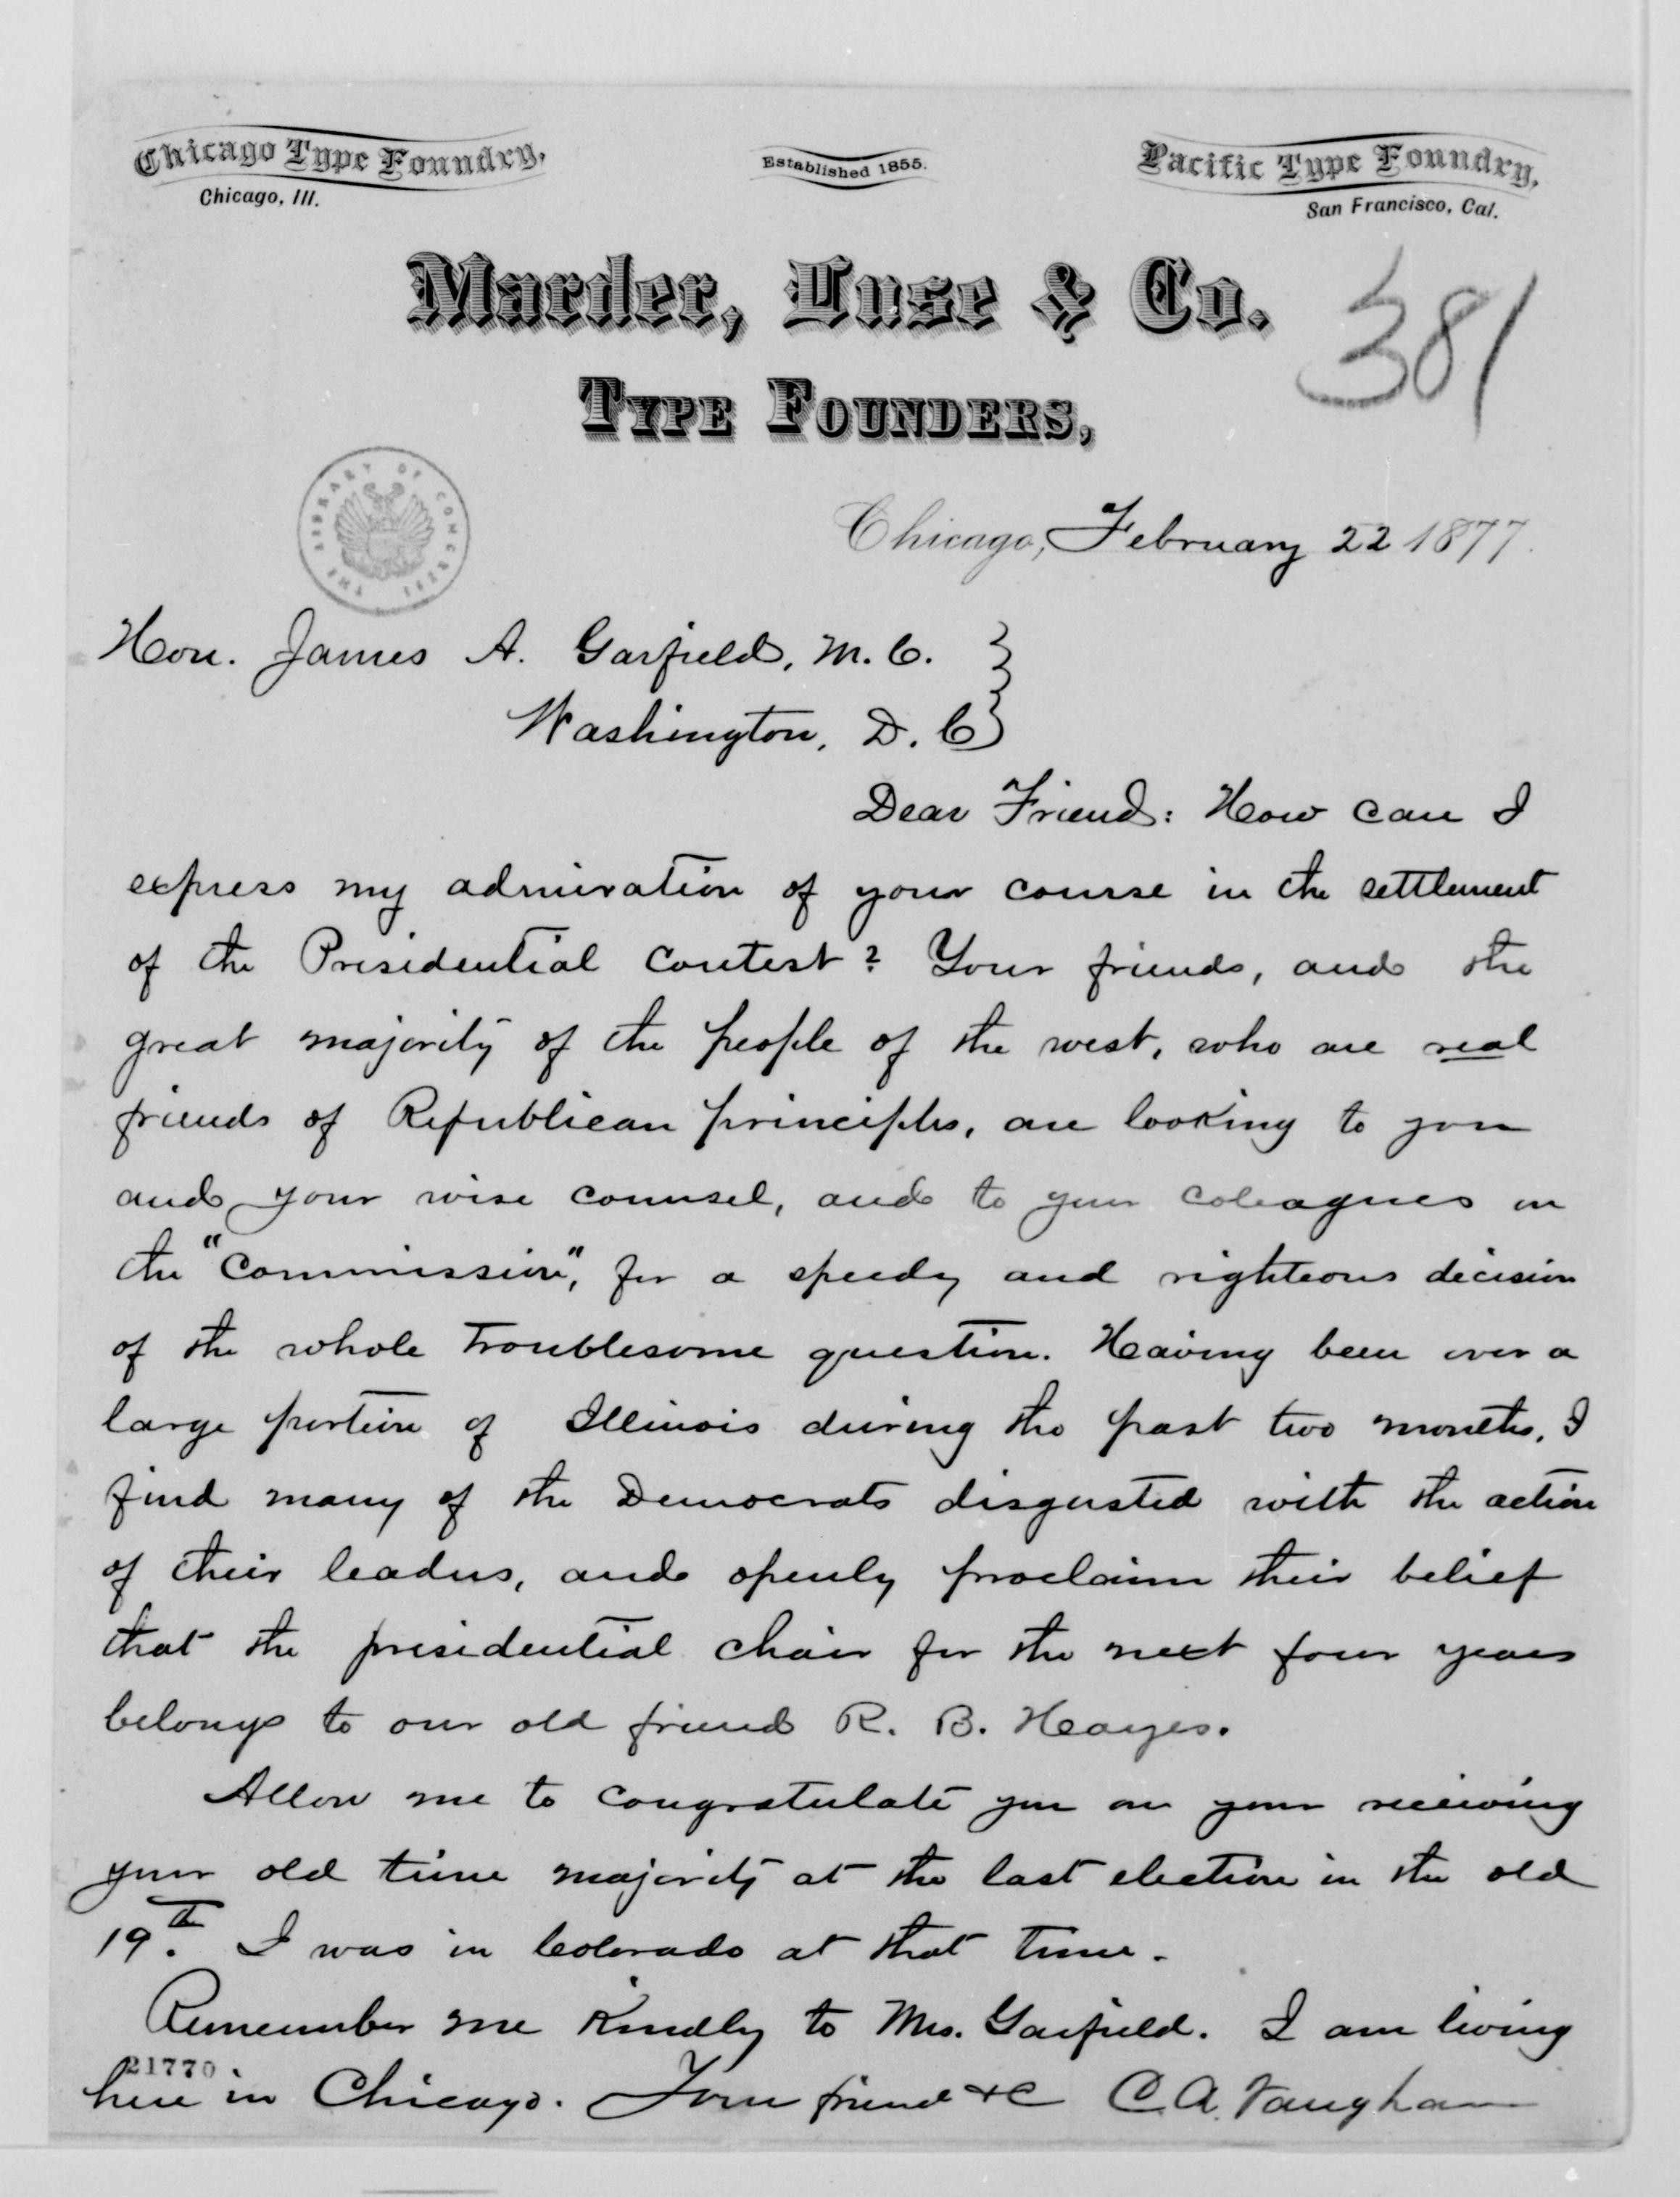 Chicago Type Foundry,
Chicago, Ill.
Established 1855.
Pacific Type Foundry,
San Francisco, Cal.
Marder, Luse & Co.
381
Type Founders,
THE LIBRARY OF CONGRESS
Chicago, February 22 1877.
Hon. James A. Garfield, M. C.
Washington, D. C
Dear Friend: How can I
express my admiration of your course in the settlement
of the Presidential contest? Your friends, and the
great majority of the people of the west, who are real
friends of Republican principles, are looking to you
and your wise counsel, and to your coleagues on
the "Commission", for a speedy and righteous decision
of the whole troublesome question. Having been over a
large portion of Illinois during the past two months, I
find many of the Democrats disgusted with the action
of their leaders, and openly proclaim their belief
that the presidential chair for the next four years
belongs to our old friend R. B. Hayes.
Allow me to congratulate you on your receiving
your old time majority at the last election in the old
19th. I was in Colorado at that time.
Remember me kindly to Mrs. Garfield. I am living
21770
here in Chicago. Your friend &c C. A. Vaughan